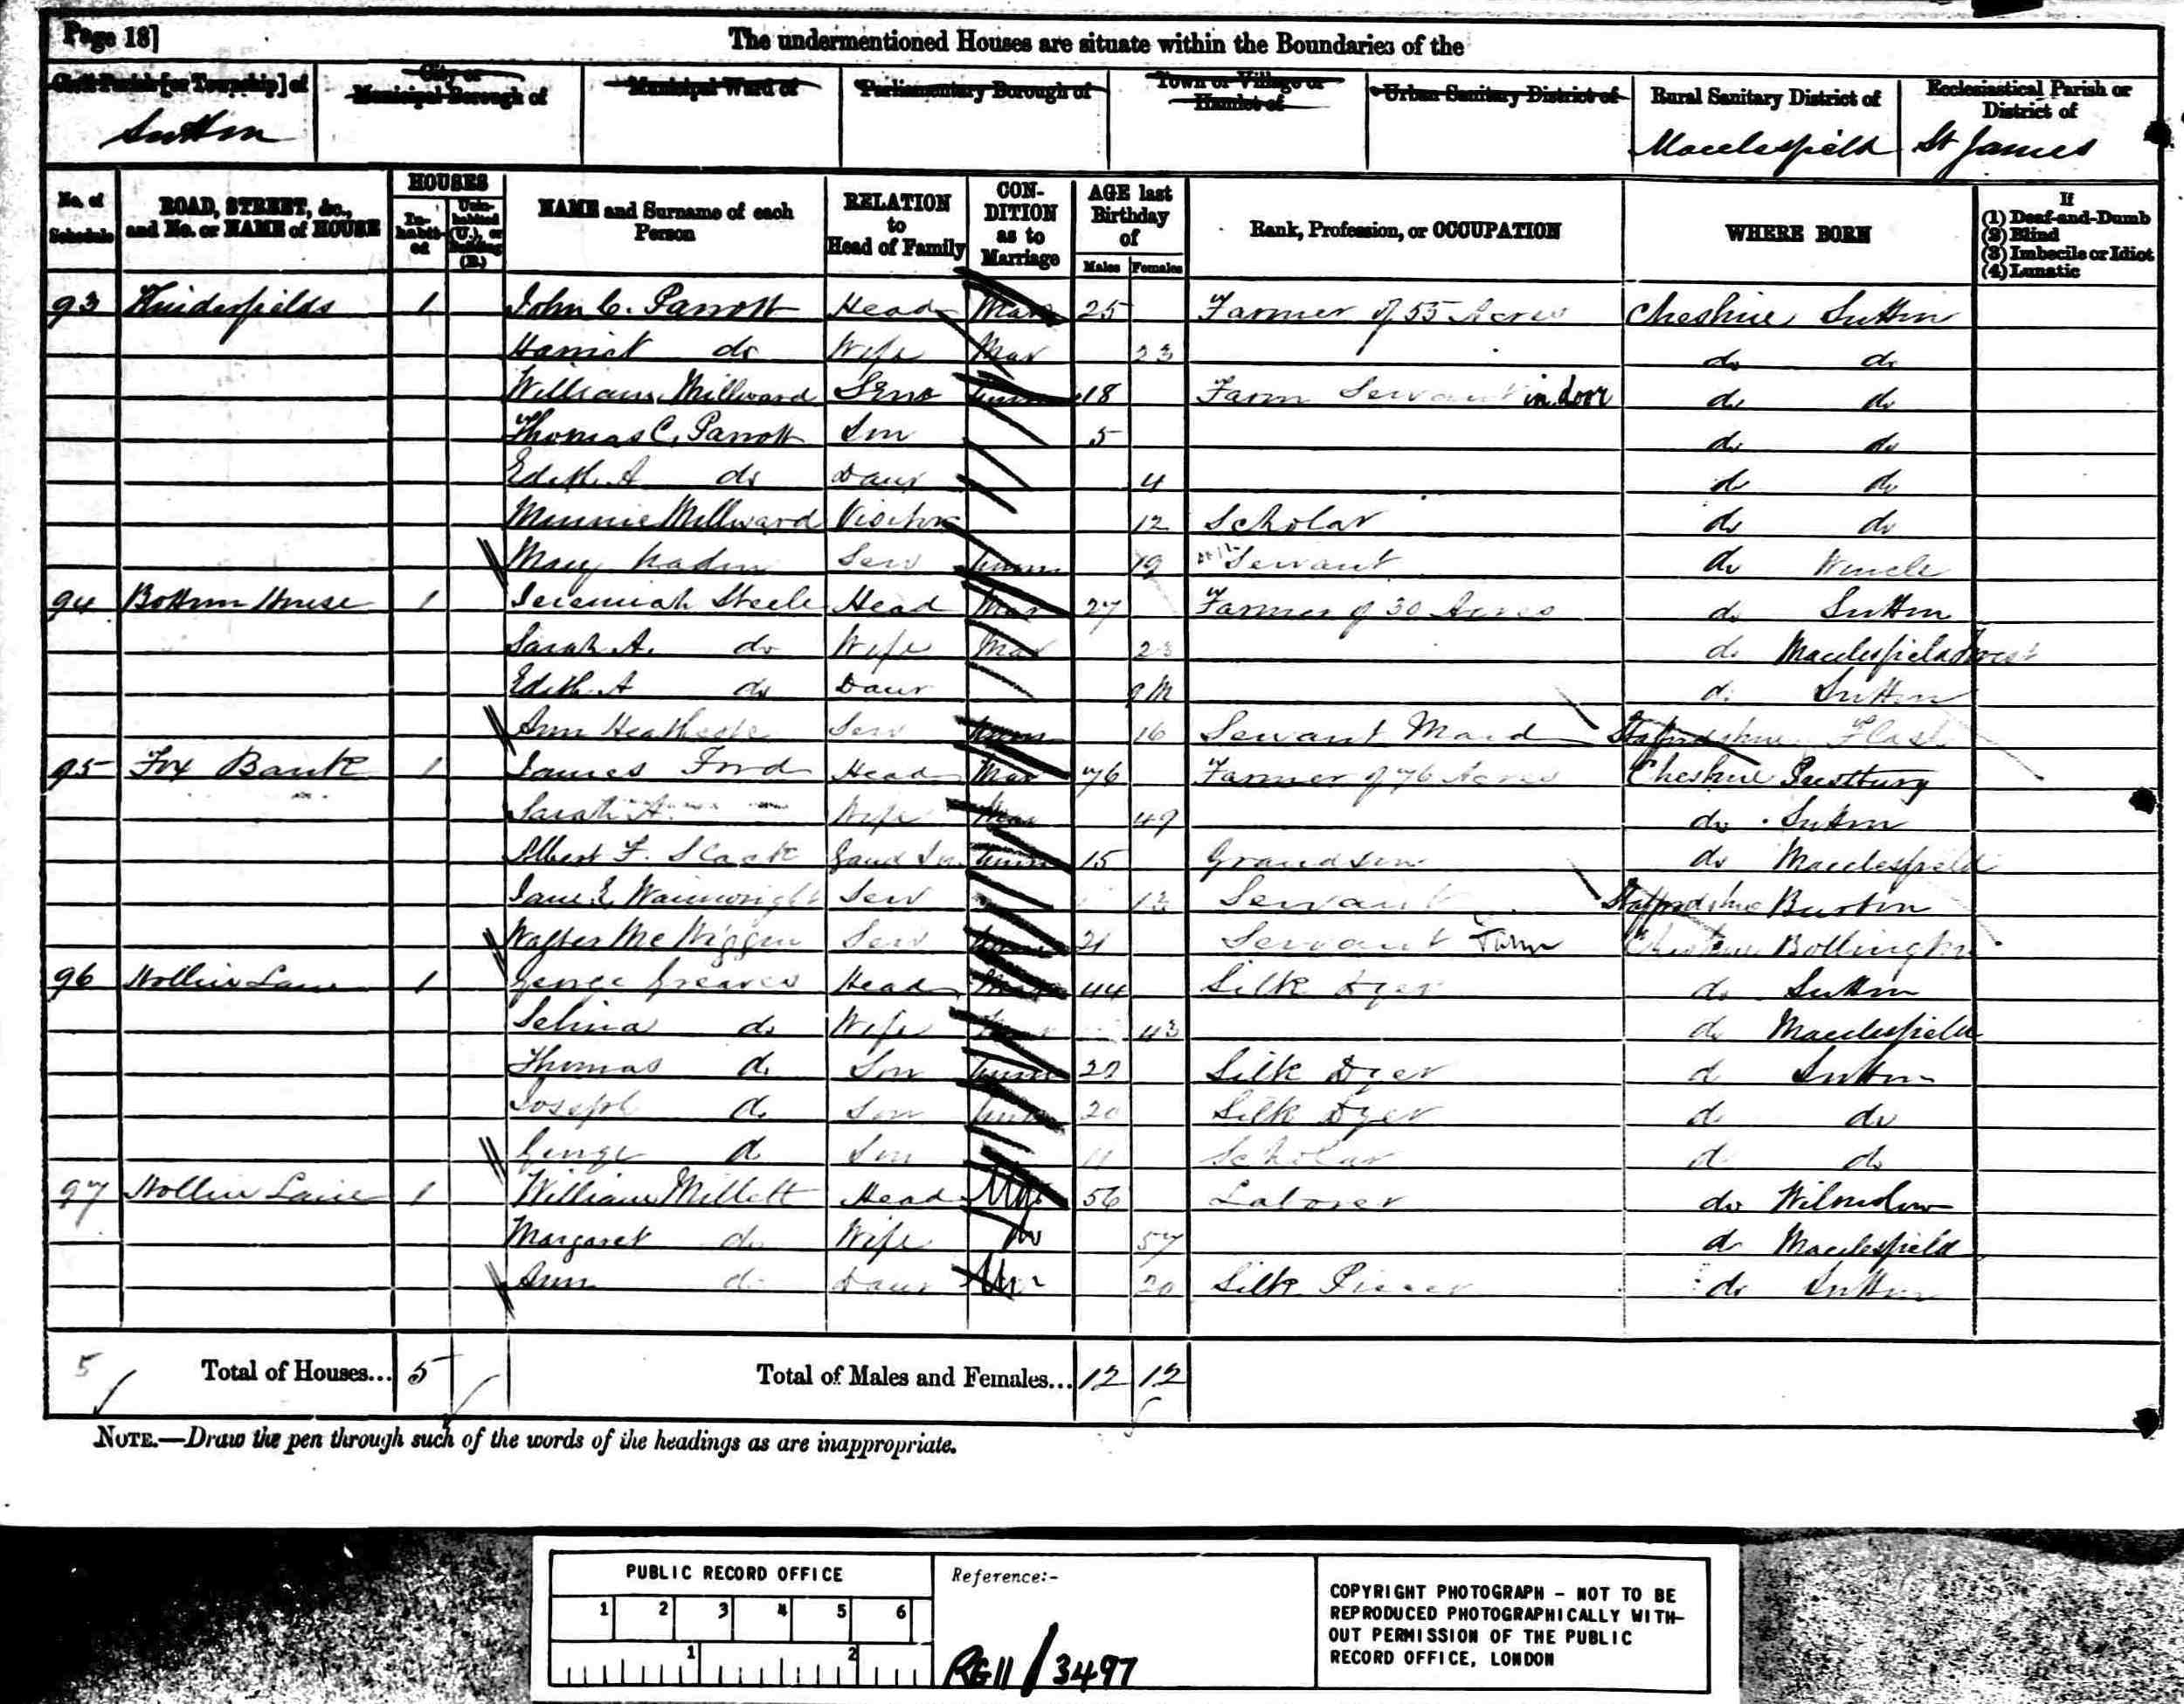 Page 18]
The undermentioned Houses are situate within the Boundaries of the
Civil Parish [or Township] of
City or Municipal Borough of
Municipal Ward of
Parliamentary Borough of
Town or Village or Hamlet of
Urban Sanitary District of
Rural Sanitary District of
Ecclesiastical Parish or District of
Sutton Macclesfield St James
No. of Schedule
ROAD, STREET, &c., and No. or NAME of HOUSE
HOUSES
In-habit-ed
Unin-habited (U.), or Building (B.)
NAME and Surname of each Person
RELATION to Head of Family
CON-DITION as to Marriage
AGE last Birthday of
Males Females
Rank, Profession, or OCCUPATION
WHERE BORN
If
(1) Deaf-and-Dumb
(2) Blind
(3) Imbecile or Idiot
(4) Lunatic
93 Kinderfields 1 John C. Parrott Head Mar 25 Farmer of 55 Acres Cheshire Sutton
Harriet do Wife Mar 23 do do
William Millward Unm 18 Farm Servant indoor do do
Thomas C. Parrott Son 5 do do
Edith A do Daur 4 do do
Minnie Millward Visitor 12 Scholar do do
Mary Nadin Serv Unm 19 Servant do Wincle
94 Bottom House 1 Jeremiah Steele Head Mar 27 Farmer of 30 Acres do Sutton
Sarah A. do Wife Mar 23 do Macclesfield Forest
Edith A do Daur 9m do Sutton
Ann Serv Unm 16 Servant Maid Staffordshire Flash
95 Fox Bank 1 James Ford Head Mar 76 Farmer of 76 Acres Cheshire Prestbury
Sarah A. Wife Mar 49 do Sutton
Albert F. Slack Grand Son Unm 15 Grandson do Macclesfield
Jane E Wainwright Serv 13 Servant Staffordshire Burton
Walter Mc Niggin Serv Unm 21 Servant Farm Cheshire Bollington
96 Hollin Lane 1 George Greaves Head Mar 44 Silk Dyer do Sutton
Selina do Wife Mar 43 do Macclesfield
Thomas do Son Unm 22 Silk Dyer do Sutton
Joseph do Son Unm 20 Silk Dyer do do
George do Son 11 Scholar do do
97 Hollin Lane 1 William Millett Head Mar 56 Laborer do Wilmslow
Margaret do Wife do 57 do Macclesfield
Ann do Daur Un 20 Silk Piecer do Sutton
5 Total of Houses... 5 Total of Males and Females... 12 12
NOTE.—Draw the pen through such of the words of the headings as are inappropriate.
PUBLIC RECORD OFFICE
1 2 3 4 5 6
1 2
Reference:-
RG11/3497
COPYRIGHT PHOTOGRAPH - NOT TO BE
REPRODUCED PHOTOGRAPHICALLY WITH-
OUT PERMISSION OF THE PUBLIC
RECORD OFFICE, LONDON